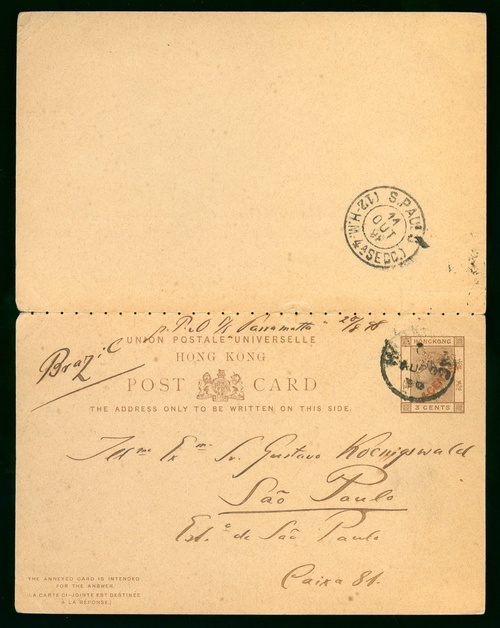 (12-H.M.) S. PAULO
11
OUT
4ª SECC.)
p. P. & O. S/S Parramatta - 20/8 98
Brazil
UNION POSTALE UNIVERSELLE
HONG KONG
POST CARD
THE ADDRESS ONLY TO BE WRITTEN ON THIS SIDE.
HONGKONG
3 CENTS
Illmo Exmo Sr. Gustavo Koenigswald
São Paulo
Est.º de São Paulo
Caixa 81.
THE ANNEXED CARD IS INTENDED
FOR THE ANSWER.
(LA CARTE CI-JOINTE EST DESTINÉE
À LA RÉPONSE.)